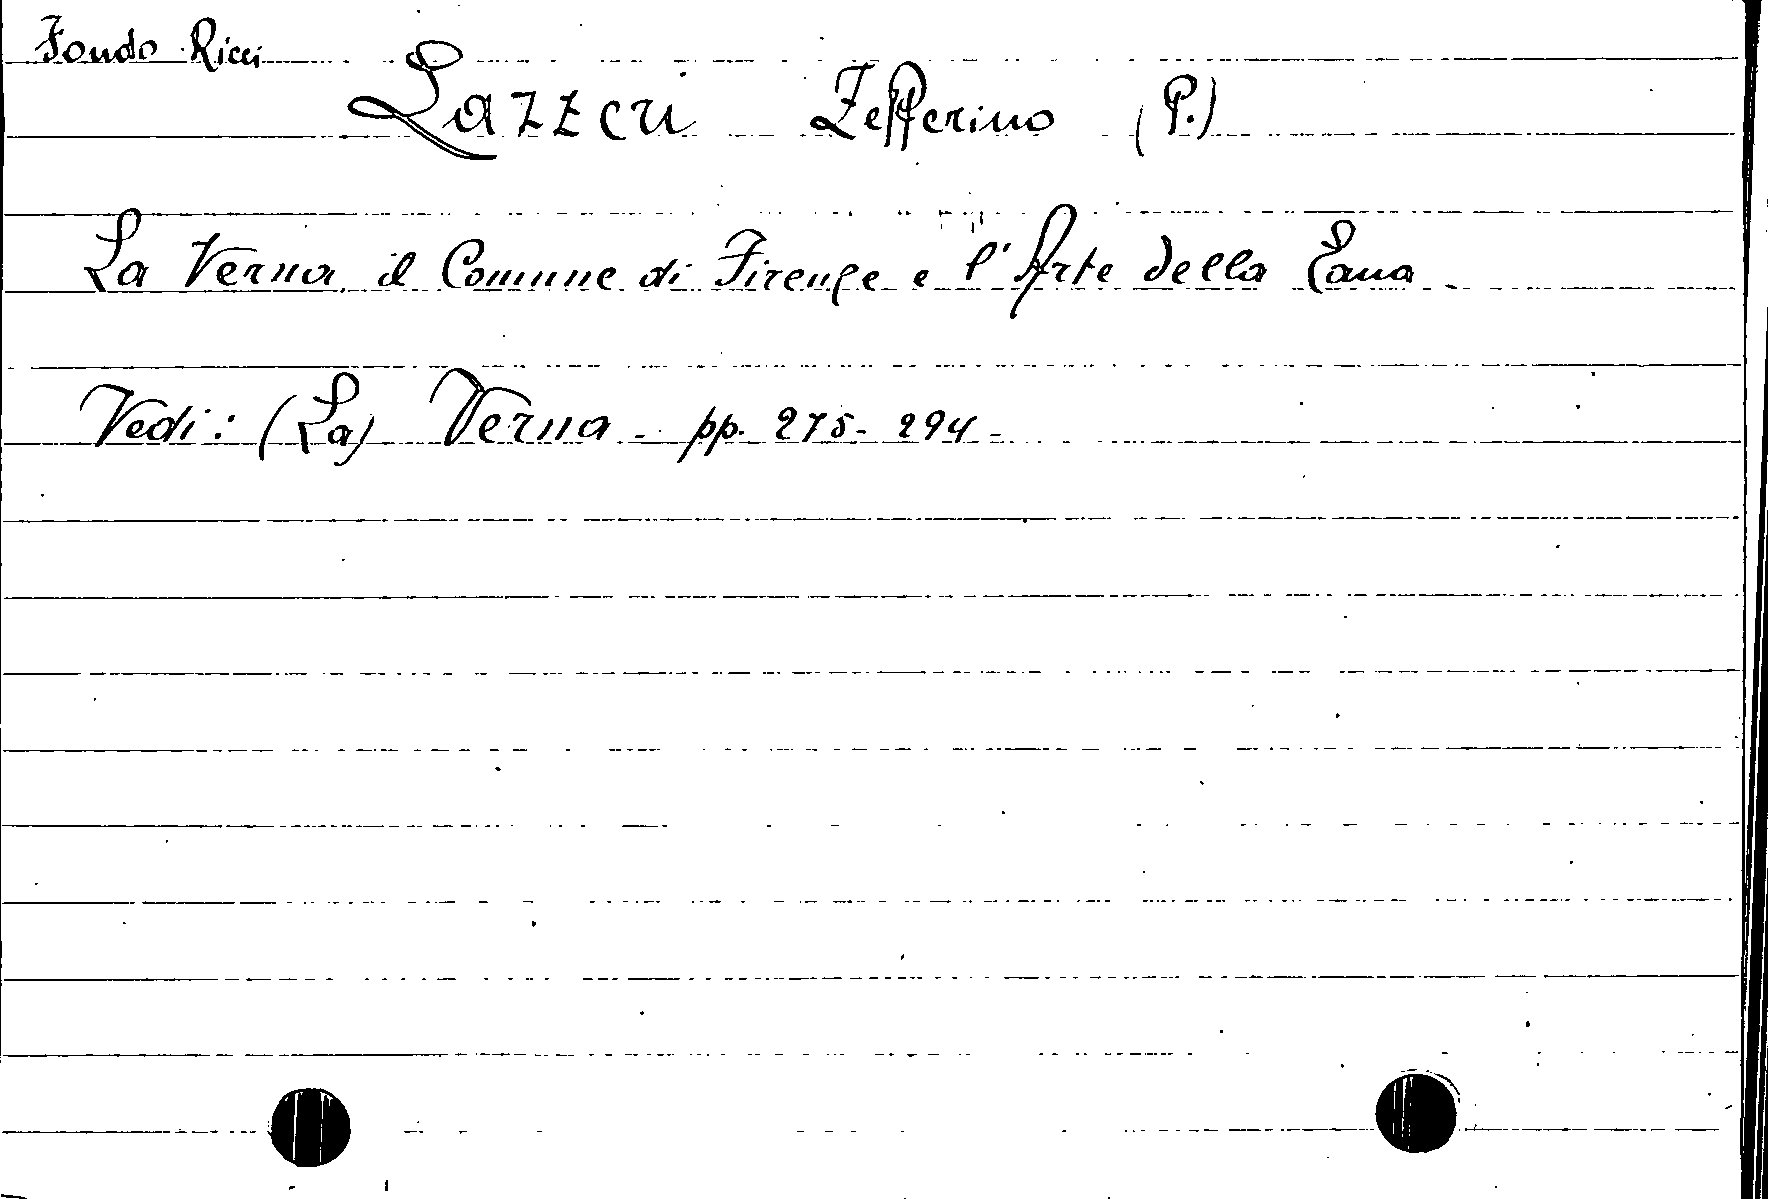 Fondo Ricci
Lazzeri Zefferino (P.)
La Verna, il Comune di Firenze e l'Arte della Lana
Vedi: (La) Verna - pp. 275- 294-